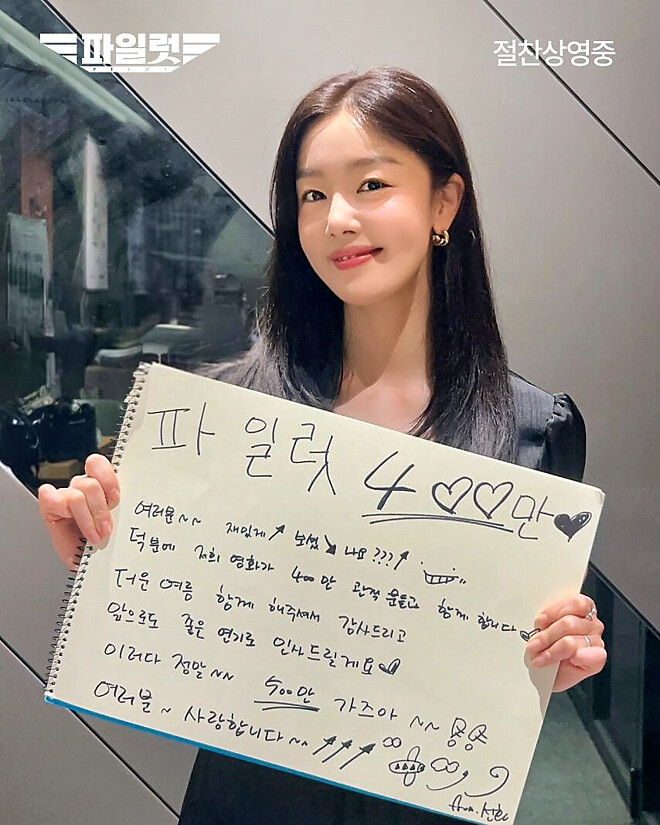 파일럿
PILOT
절찬상영중
파일럿 400만
여러분~~ 재밌게↗ 보셨↘나요???↗
덕분에 저희 영화가 400만 관객 분들과 함께 합니다
더운 여름 함께 해주셔서 감사드리고
앞으로도 좋은 연기로 인사드릴게요♡
이러다 정말~~ 500만 가즈아~~
여러분~ 사랑합니다~~↗↗↗
from.선화